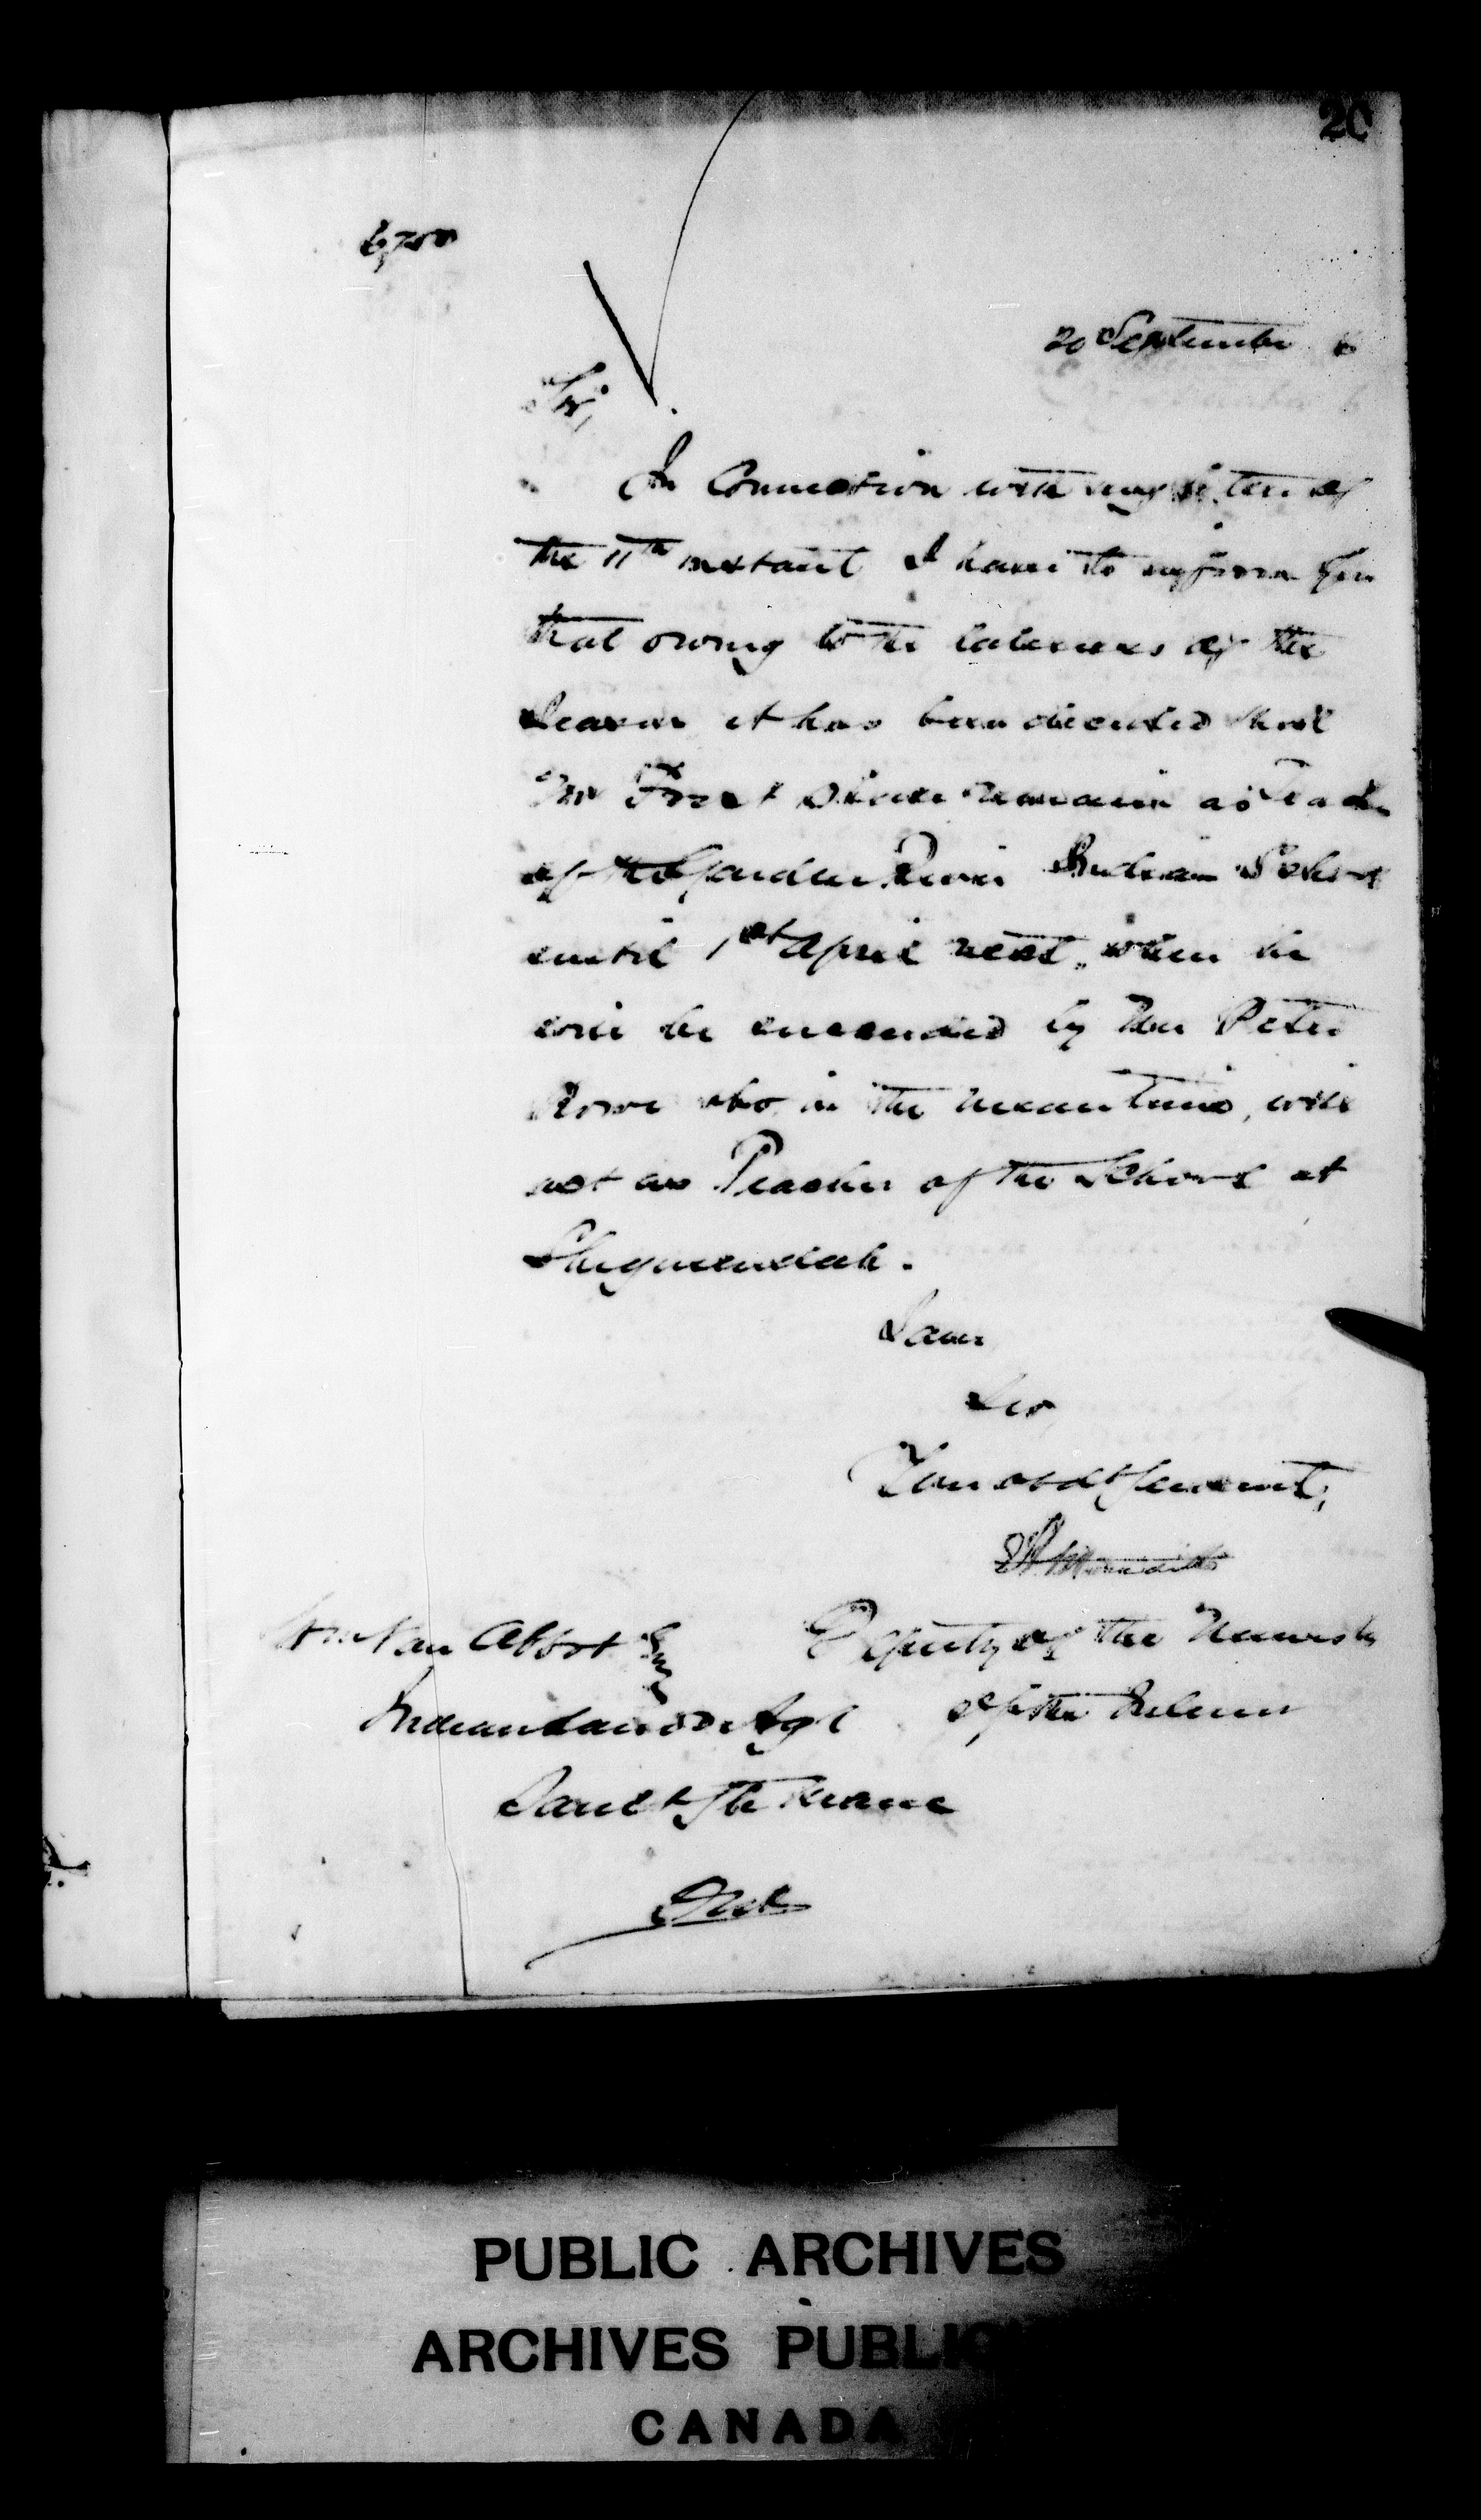 20
6700
20 September 6
Sir,
In Connection with my letter of
the 11th instant I have to inform you
that owing to the lateness of the
Season it has been decided that
Mr Frost shall remain as Teacher
of the Garden River Indian School
until 1st April next, when he
will be succeeded by Mr Peter
who in the meantime, will
act as Teacher of the School at
Sheguiandah.
I am
Sir
Your obdt Servant,
Deputy of the Minister
of the Interior
Wm Van Abbott Esq
Indian Lands Agt
Sault Ste Marie
Ont
PUBLIC ARCHIVES
ARCHIVES PUBLIC
CANADA